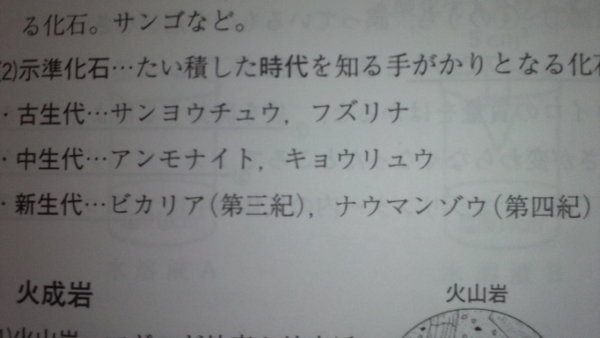 る化石。サンゴなど。
(2)示準化石…たい積した時代を知る手がかりとなる化石
・古生代…サンヨウチュウ，フズリナ
・中生代…アンモナイト，キョウリュウ
・新生代…ビカリア(第三紀)，ナウマンゾウ(第四紀)
火成岩
火山岩
火山岩